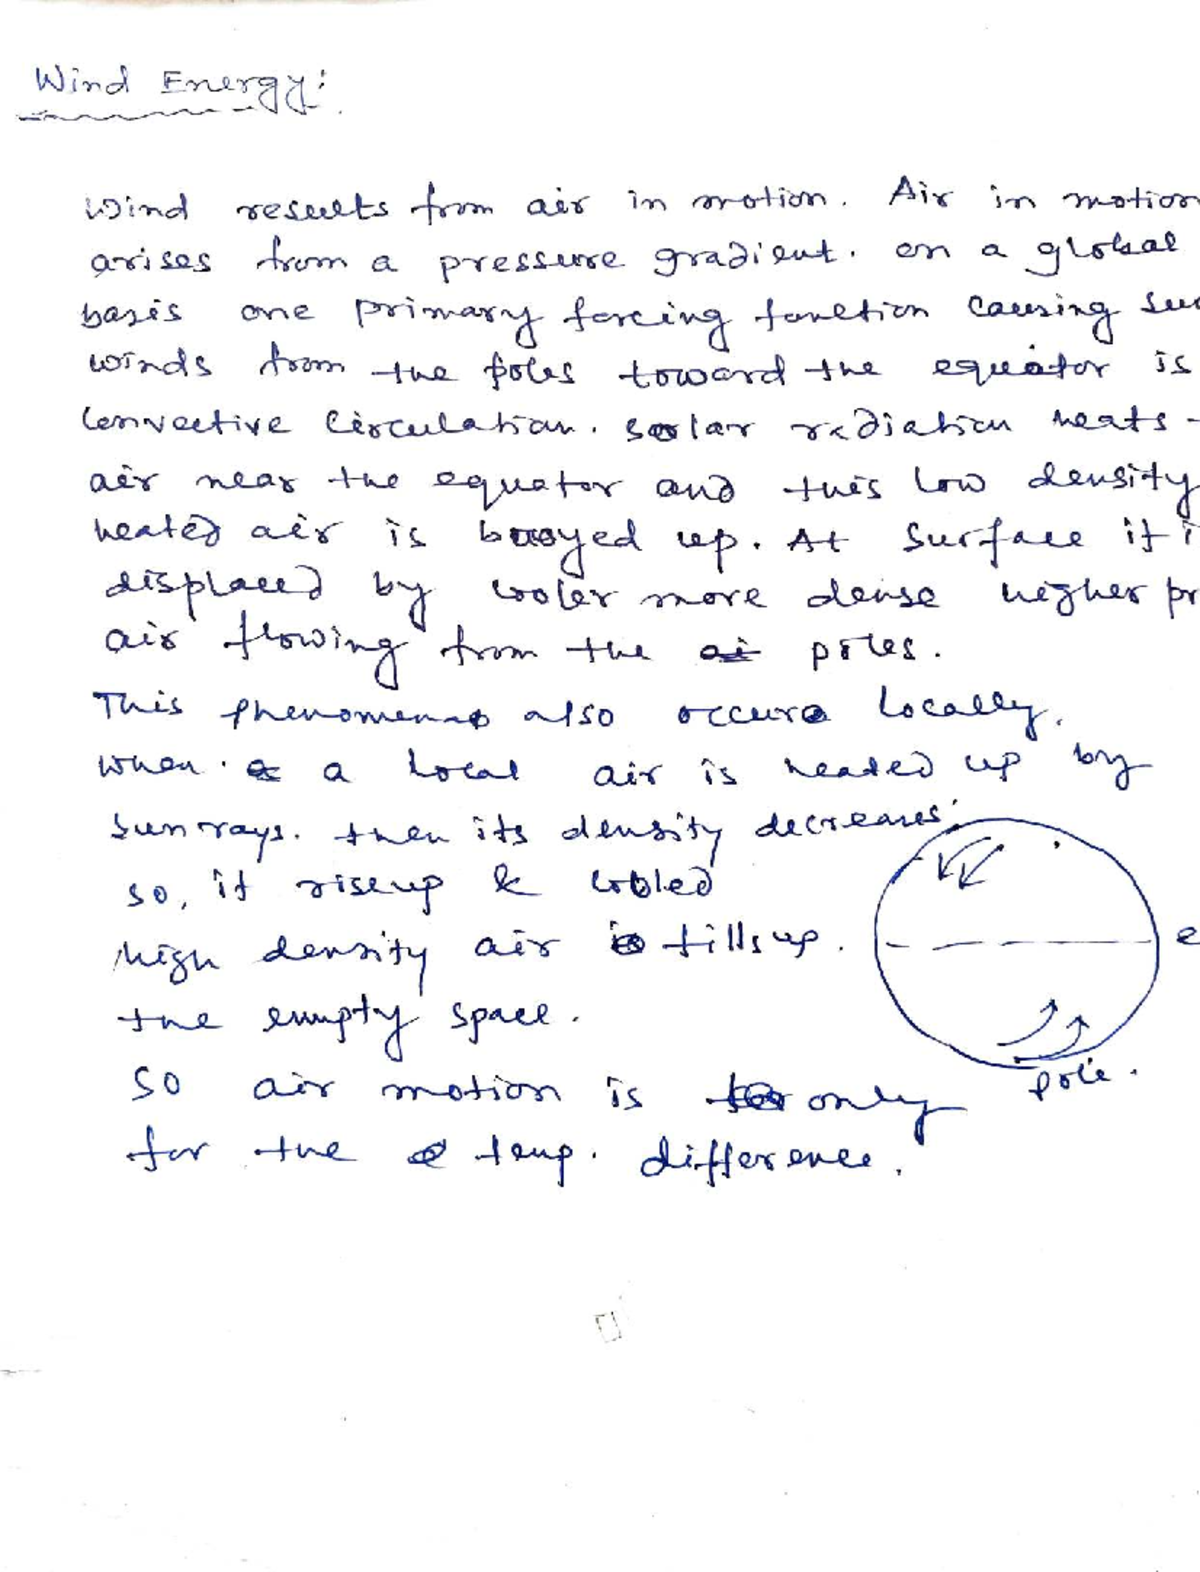 Wind Energy:
Wind results from air in motion. Air in motion
arises from a pressure gradient. on a global
basis one primary forcing function causing
winds from the poles toward the equator is
Convective Circulation. solar radiation heats
air near the equator and this low density
heated air is buoyed up. At surface it
displaced by cooler more dense higher
air flowing from the poles.
This phenomena also occurs locally.
when a local air is heated up by
sunrays. then its density decreases.
so, it rise up & cooled
high density air fills up.
the empty space.
e
So air motion is only
pole.
for the temp. difference.